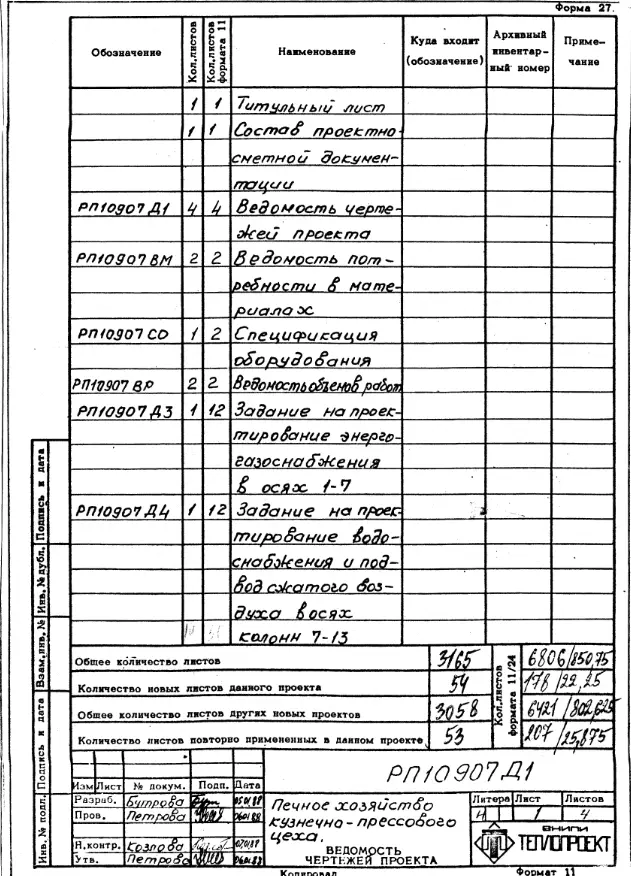 Форма 27.
Обозначение Кол.листов Кол.листов формата 11 Наименование Куда входит (обозначение) Архивный инвентар- ный номер Приме- чание
1 1 Титульный лист
1 1 Состав проектно-
сметной докумен-
тации
РП10907Д1 4 4 Ведомость черте-
жей проекта
РП10907ВМ 2 2 Ведомость пот-
ребности в мате-
риалах
РП10907СО 1 2 Спецификация
оборудования
РП10907ВР 2 2 Ведомость объемов работ
РП10907Д3 1 12 Задание на проек-
тирование энерго-
газоснабжения
в осях 1-7
РП10907Д4 1 12 Задание на проек-
тирование водо-
снабжения и под-
вод сжатого воз-
духа в осях
колонн 7-13
Общее количество листов 3165 Кол.листов формата 11/24 6806/850,75
Количество новых листов данного проекта 54 178/22,25
Общее количество листов других новых проектов 3058 6421/802,625
Количество листов повторно примененных в данном проекте 53 207/25,875
Инв. № подл. Подпись и дата Взам.инв. № Инв. № дубл. Подпись и дата
РП10907Д1
Изм Лист № докум. Подп. Дата
Разраб. Бутрова 05.01.88
Пров. Петрова 06.01.88
Н.контр. Козлова
Утв. Петрова
Печное хозяйство
кузнечно-прессового
цеха.
ВЕДОМОСТЬ
ЧЕРТЕЖЕЙ ПРОЕКТА
Литера Лист Листов
Ч 1 4
ВНИПИ
ТЕПЛОПРОЕКТ
Копировал Формат 11